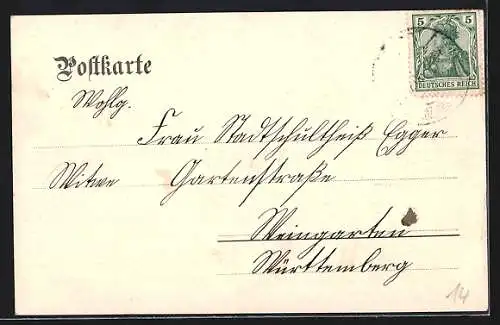 5 5
DEUTSCHES REICH
Postkarte
Wohlg.
Frau Stadtschultheiß Egger
Witwe Gartenstraße
Weingarten
Württemberg
14